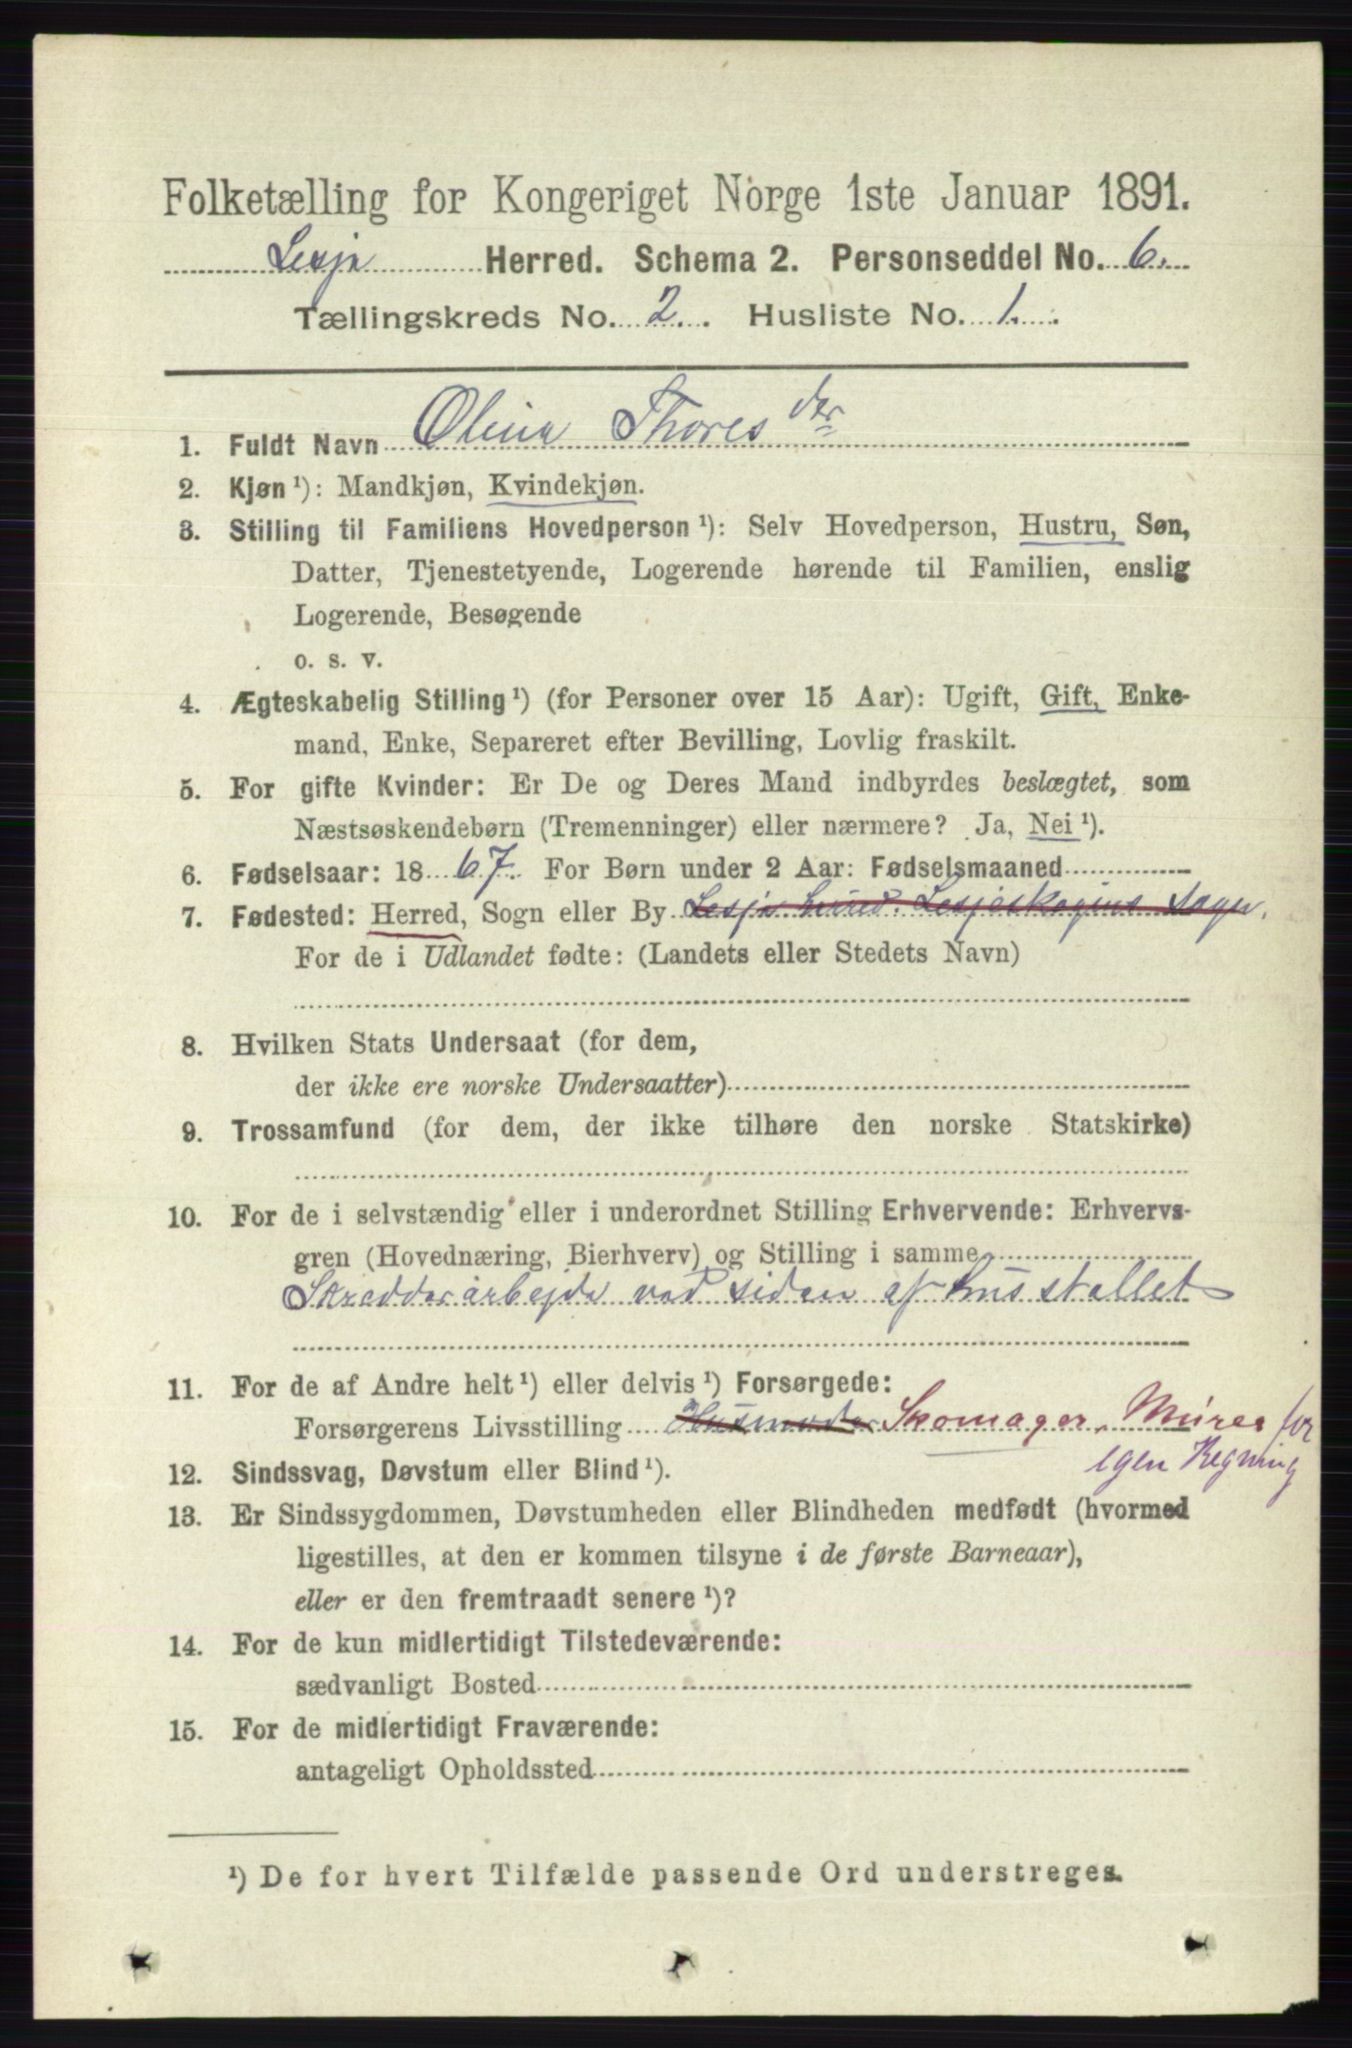 Folketælling for Kongeriget Norge 1ste Januar 1891.
Lesja Herred. Schema 2. Personseddel No. 6.
Tællingskreds No. 2. Husliste No. 1.
1. Fuldt Navn Olina Thoresdar
2. Kjøn ¹): Mandkjøn, Kvindekjøn.
3. Stilling til Familiens Hovedperson ¹): Selv Hovedperson, Hustru, Søn,
Datter, Tjenestetyende, Logerende hørende til Familien, enslig
Logerende, Besøgende
o. s. v.
4. Ægteskabelig Stilling ¹) (for Personer over 15 Aar): Ugift, Gift, Enke-
mand, Enke, Separeret efter Bevilling, Lovlig fraskilt.
5. For gifte Kvinder: Er De og Deres Mand indbyrdes beslægtet, som
Næstsøskendebørn (Tremenninger) eller nærmere? Ja, Nei ¹).
6. Fødselsaar: 1867. For Børn under 2 Aar: Fødselsmaaned
7. Fødested: Herred, Sogn eller By Lesja herred. Lesjeskogens Sogn.
For de i Udlandet fødte: (Landets eller Stedets Navn)
8. Hvilken Stats Undersaat (for dem,
der ikke ere norske Undersaatter)
9. Trossamfund (for dem, der ikke tilhøre den norske Statskirke)
10. For de i selvstændig eller i underordnet Stilling Erhvervende: Erhvervs-
gren (Hovednæring, Bierhverv) og Stilling i samme
Skrædderarbejde ved siden af husstellet
11. For de af Andre helt ¹) eller delvis ¹) Forsørgede:
Forsørgerens Livsstilling Husmoder Skomager, Murer for
egen Regning
12. Sindssvag, Døvstum eller Blind ¹).
13. Er Sindssygdommen, Døvstumheden eller Blindheden medfødt (hvormed
ligestilles, at den er kommen tilsyne i de første Barneaar),
eller er den fremtraadt senere ¹)?
14. For de kun midlertidigt Tilstedeværende:
sædvanligt Bosted
15. For de midlertidigt Fraværende:
antageligt Opholdssted
¹) De for hvert Tilfælde passende Ord understreges.